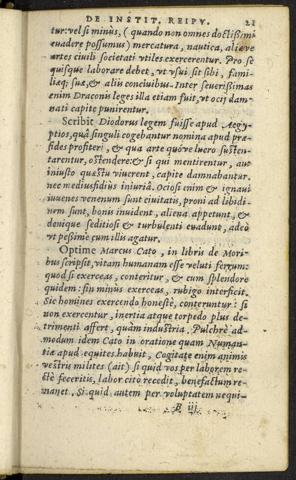 DE INSTIT. REIPV. 21
tur: vel si minùs, (quando non omnes doctissimi
euadere possumus) mercatura, nautica, aliáve
artes ciuili societati vtiles exercerentur. Pro se
quisque laborare debet, vt vsui sit sibi, fami-
liæq; suæ, & aliis conciuibus. Inter seuerissimas
enim Draconis leges illa etiam fuit, vt ocij dam-
nati capite punirentur.
Scribit Diodorus legem fuisse apud Aegy-
ptios, quâ singuli cogebantur nomina apud præ-
sides profiteri, & qua arte quóve lucro susten-
tarentur, ostendere: & si qui mentirentur, aut
iniusto quæstu viuerent, capite damnabantur.
nec mediusfidius iniuriâ. Ociosi enim & ignaui
iuuenes venenum sunt ciuitatis, proni ad libidi-
nem sunt, bonis inuident, aliena appetunt, &
denique seditiosi & turbulenti euadunt, adeò
vt pessimè cum illis agatur.
Optimè Marcus Cato, in libris de Mori-
bus scripsit, vitam humanam esse veluti ferrum:
quod si exerceas, conteritur, & cum splendore
quidem: sin minùs exerceas, rubigo interficit.
Sic homines exercendo honestè, conteruntur: si
non exercentur, inertia atque torpedo plus de-
trimenti affert, quàm industria. Pulchrè ad-
modum idem Cato in oratione quam Numan-
tiæ apud equites habuit, Cogitate enim animis
vestris milites (ait) si quid vos per laborem re-
ctè feceritis, labor citò recedit, benefactum re-
manet, Si quid autem per voluptatem nequi-
iij